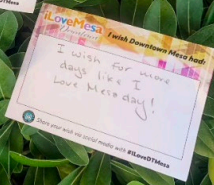 iLoveMesa
Downtown
I wish Downtown Mesa had:
I wish for more
days like I
Love Mesa day!
Share your wish via social media with #ILoveDTMesa